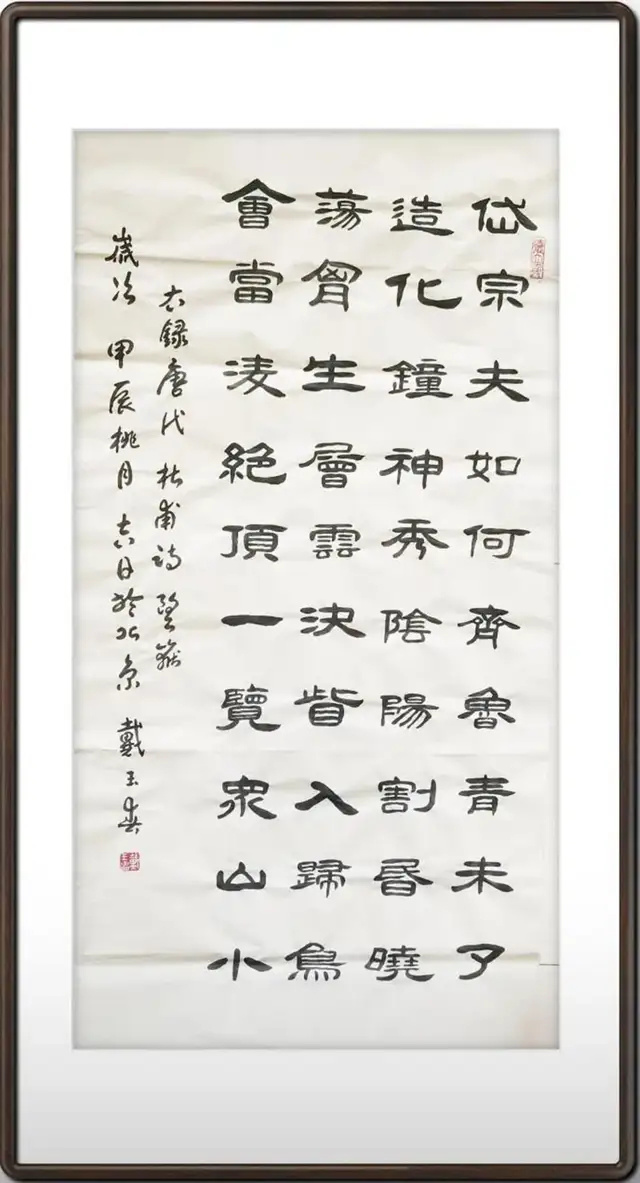 岱宗夫如何齊魯青未了
造化鐘神秀陰陽割昏曉
蕩胷生層雲決眥入歸鳥
會當凌絕頂一覽眾山小
右録唐代杜甫詩望嶽
歲次甲辰桃月吉日於北京戴玉春